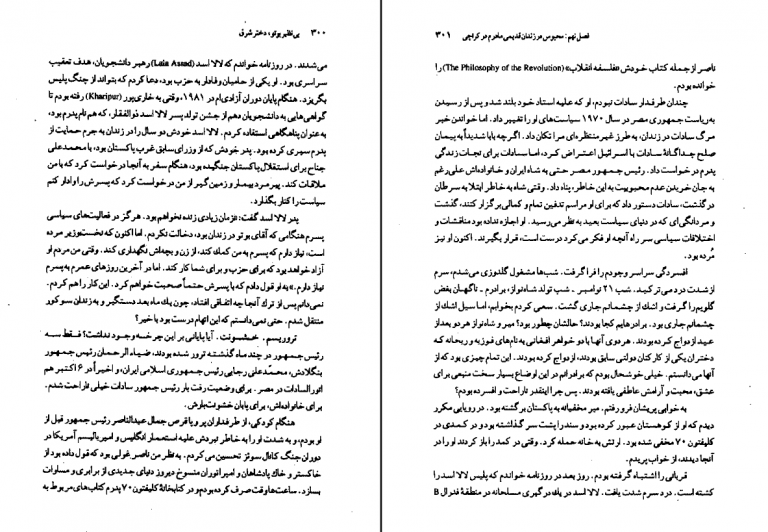 ۳۰۰ بی‌نظیر بوتو، دختر شرق
می‌شدند. در روزنامه خواندم که لالا اسد (Lala Assad) رهبر دانشجویان، هدف تعقیب
سراسری بود. او یکی از حامیان وفادار به حزب بود، دعا کردم که بتواند از جنگ پلیس
بگریزد. هنگام پایان دوران آزادی‌ام در ۱۹۸۱، وقتی به خاری‌پور (Kharipur) رفته بودم تا
گواهی‌هایی به دانشجویان دهم از جشن تولد پسر لالا اسد ذوالفقار، که هم نام پدرم بود،
به‌عنوان پناهگاهی استفاده کردم. لالا اسد خودش دو سال را در زندان به جرم حمایت از
پدرم سپری کرده بود. پدر خودش که از وزرای سابق غرب پاکستان بود، با محمدعلی
جناح برای استقلال پاکستان جنگیده بود، هنگام سفر به آنجا درخواست کرد که با من
ملاقات کند. پیرمرد بیمار و زمین‌گیر از من درخواست کرد که پسرش را وادار کنم
سیاست را کنار بگذارد.
پدر لالا اسد گفت: «زمان زیادی زنده نخواهم بود. هرگز در فعالیت‌های سیاسی
پسرم هنگامی که آقای بوتو در زندان بود، دخالت نکردم. اما اکنون که نخست‌وزیر مرده
است، نیاز دارم که پسرم به من کمك کند، از زن و بچه‌اش نگهداری کند. وقتی من مردم او
آزاد خواهد بود که برای حزب و برای شما کار کند. اما در آخرین روزهای عمرم به پسرم
نیاز دارم.» به او قول دادم که با پسرش حتماً صحبت خواهم کرد. این کار را هم کردم.
نمی‌دانم پس از ترك آنجا چه اتفاقی افتاد، چون یك ماه بعد دستگیر و به زندان سوکور
منتقل شدم. حتی نمی‌دانستم که این اتهام درست بود یا خیر؟
تروریسم. خشونت. آیا پایانی بر این چرخه وجود نداشت؟ فقط سه
رئیس جمهور در چند ماه گذشته ترور شده بودند، ضیاء الرحمان رئیس جمهور
بنگلادش، محمدعلی رجایی رئیس جمهوری اسلامی ایران، و اخیراً در ۶ اکتبر هم
انور السادات در مصر. برای وضعیت رقت بار رئیس جمهور سادات خیلی ناراحت شدم.
برای خانواده‌اش، برای پایان خشونت‌بارش.
هنگام کودکی، از طرفداران پر و پا قرص جمال عبدالناصر رئیس جمهور قبل از
او بودم، و به شدت او را به خاطر نبردش علیه استعمار انگلیس و امپریالیسم آمریکا در
دوران جنگ کانال سوئز تحسین می‌کردم. به نظر من ناصر غولی بود که قول داده بود از
خاکستر و خاك پادشاهان و امپراتوران منسوخ دیروز دنیای جدیدی از برابری و مساوات
بسازد. ساعت‌ها وقت صرف کرده بودم و در کتابخانهٔ کلیفتون ۷۰ پدرم کتاب‌های مربوط به
فصل نهم: محبوس در زندان قدیمی مادرم در کراچی ۳۰۱
ناصر از جمله کتاب خودش «فلسفه انقلاب» (The Philosophy of the Revolution) را
خوانده بودم.
چندان طرفدار سادات نبودم، او که علیه استاد خود بلند شد و پس از رسیدن
به ریاست جمهوری مصر در سال ۱۹۷۰ سیاست‌های او را تغییر داد. اما خواندن خبر
مرگ سادات در زندان، به طرز غیرمنتظره‌ای مرا تکان داد. اگر چه بابا شدیداً به پیمان
صلح جداگانهٔ سادات با اسرائیل اعتراض کرد، اما سادات برای نجات زندگی
پدرم درخواست داد. رئیس جمهور مصر حتی به شاه ایران و خانواده‌اش علی‌رغم
به جان خریدن عدم محبوبیت به این خاطر، پناه داد. وقتی شاه به خاطر ابتلا به سرطان
درگذشت، سادات دستور داد که برای او مراسم تدفین تمام و کمالی برگزار کنند، گذشت
و مردانگی‌ای که در دنیای سیاست بعید به نظر می‌رسید. او اجازه نداده بود مناقشات و
اختلافات سیاسی سر راه آنچه او فکر می‌کرد درست است، قرار بگیرند. اکنون او نیز
مُرده بود.
افسردگی سراسر وجودم را فرا گرفت. شب‌ها مشغول گلدوزی می‌شدم، سرم
از شدت درد می‌ترکید. شب ۲۱ نوامبر ـ شب تولد شاه‌نواز، برادرم ـ ناگهان بغض
گلویم را گرفت و اشك از چشمانم جاری گشت. سعی کردم بخوابم، اما سیل اشك از
چشمانم جاری بود. برادرهایم کجا بودند؟ حالشان چطور بود؟ میر و شاه‌نواز هر دو بعد از
عید ازدواج کرده بودند. هر دوی آنها با دو خواهر افغانی به نام‌های فوزیه و ریحانه که
دختران یکی از کارکنان دولتی سابق بودند، ازدواج کرده بودند. این تمام چیزی بود که از
آنها می‌دانستم. خیلی خوشحال بودم که برادرانم در این اوضاع بسیار سخت منبعی برای
عشق، محبت و آرامش عاطفی یافته بودند. پس چرا اینقدر ناراحت و افسرده بودم؟
به خوابی پریشان فرو رفتم. میر مخفیانه به پاکستان برگشته بود. در رویایی مکرر
دیدم که او از کوهستان عبور کرده بود و سند را پشت سر گذاشته بود و در کمدی در
کلیفتون ۷۰ مخفی شده بود. ارتش به خانه حمله کرد. وقتی در کمد را باز کردند او را در
آنجا دیدند، از خواب پریدم.
قربانی را اشتباه گرفته بودم. روز بعد در روزنامه خواندم که پلیس لالا اسد را
کشته است. درد سرم شدت یافت. لالا اسد در یك درگیری مسلحانه در منطقهٔ فدرال B